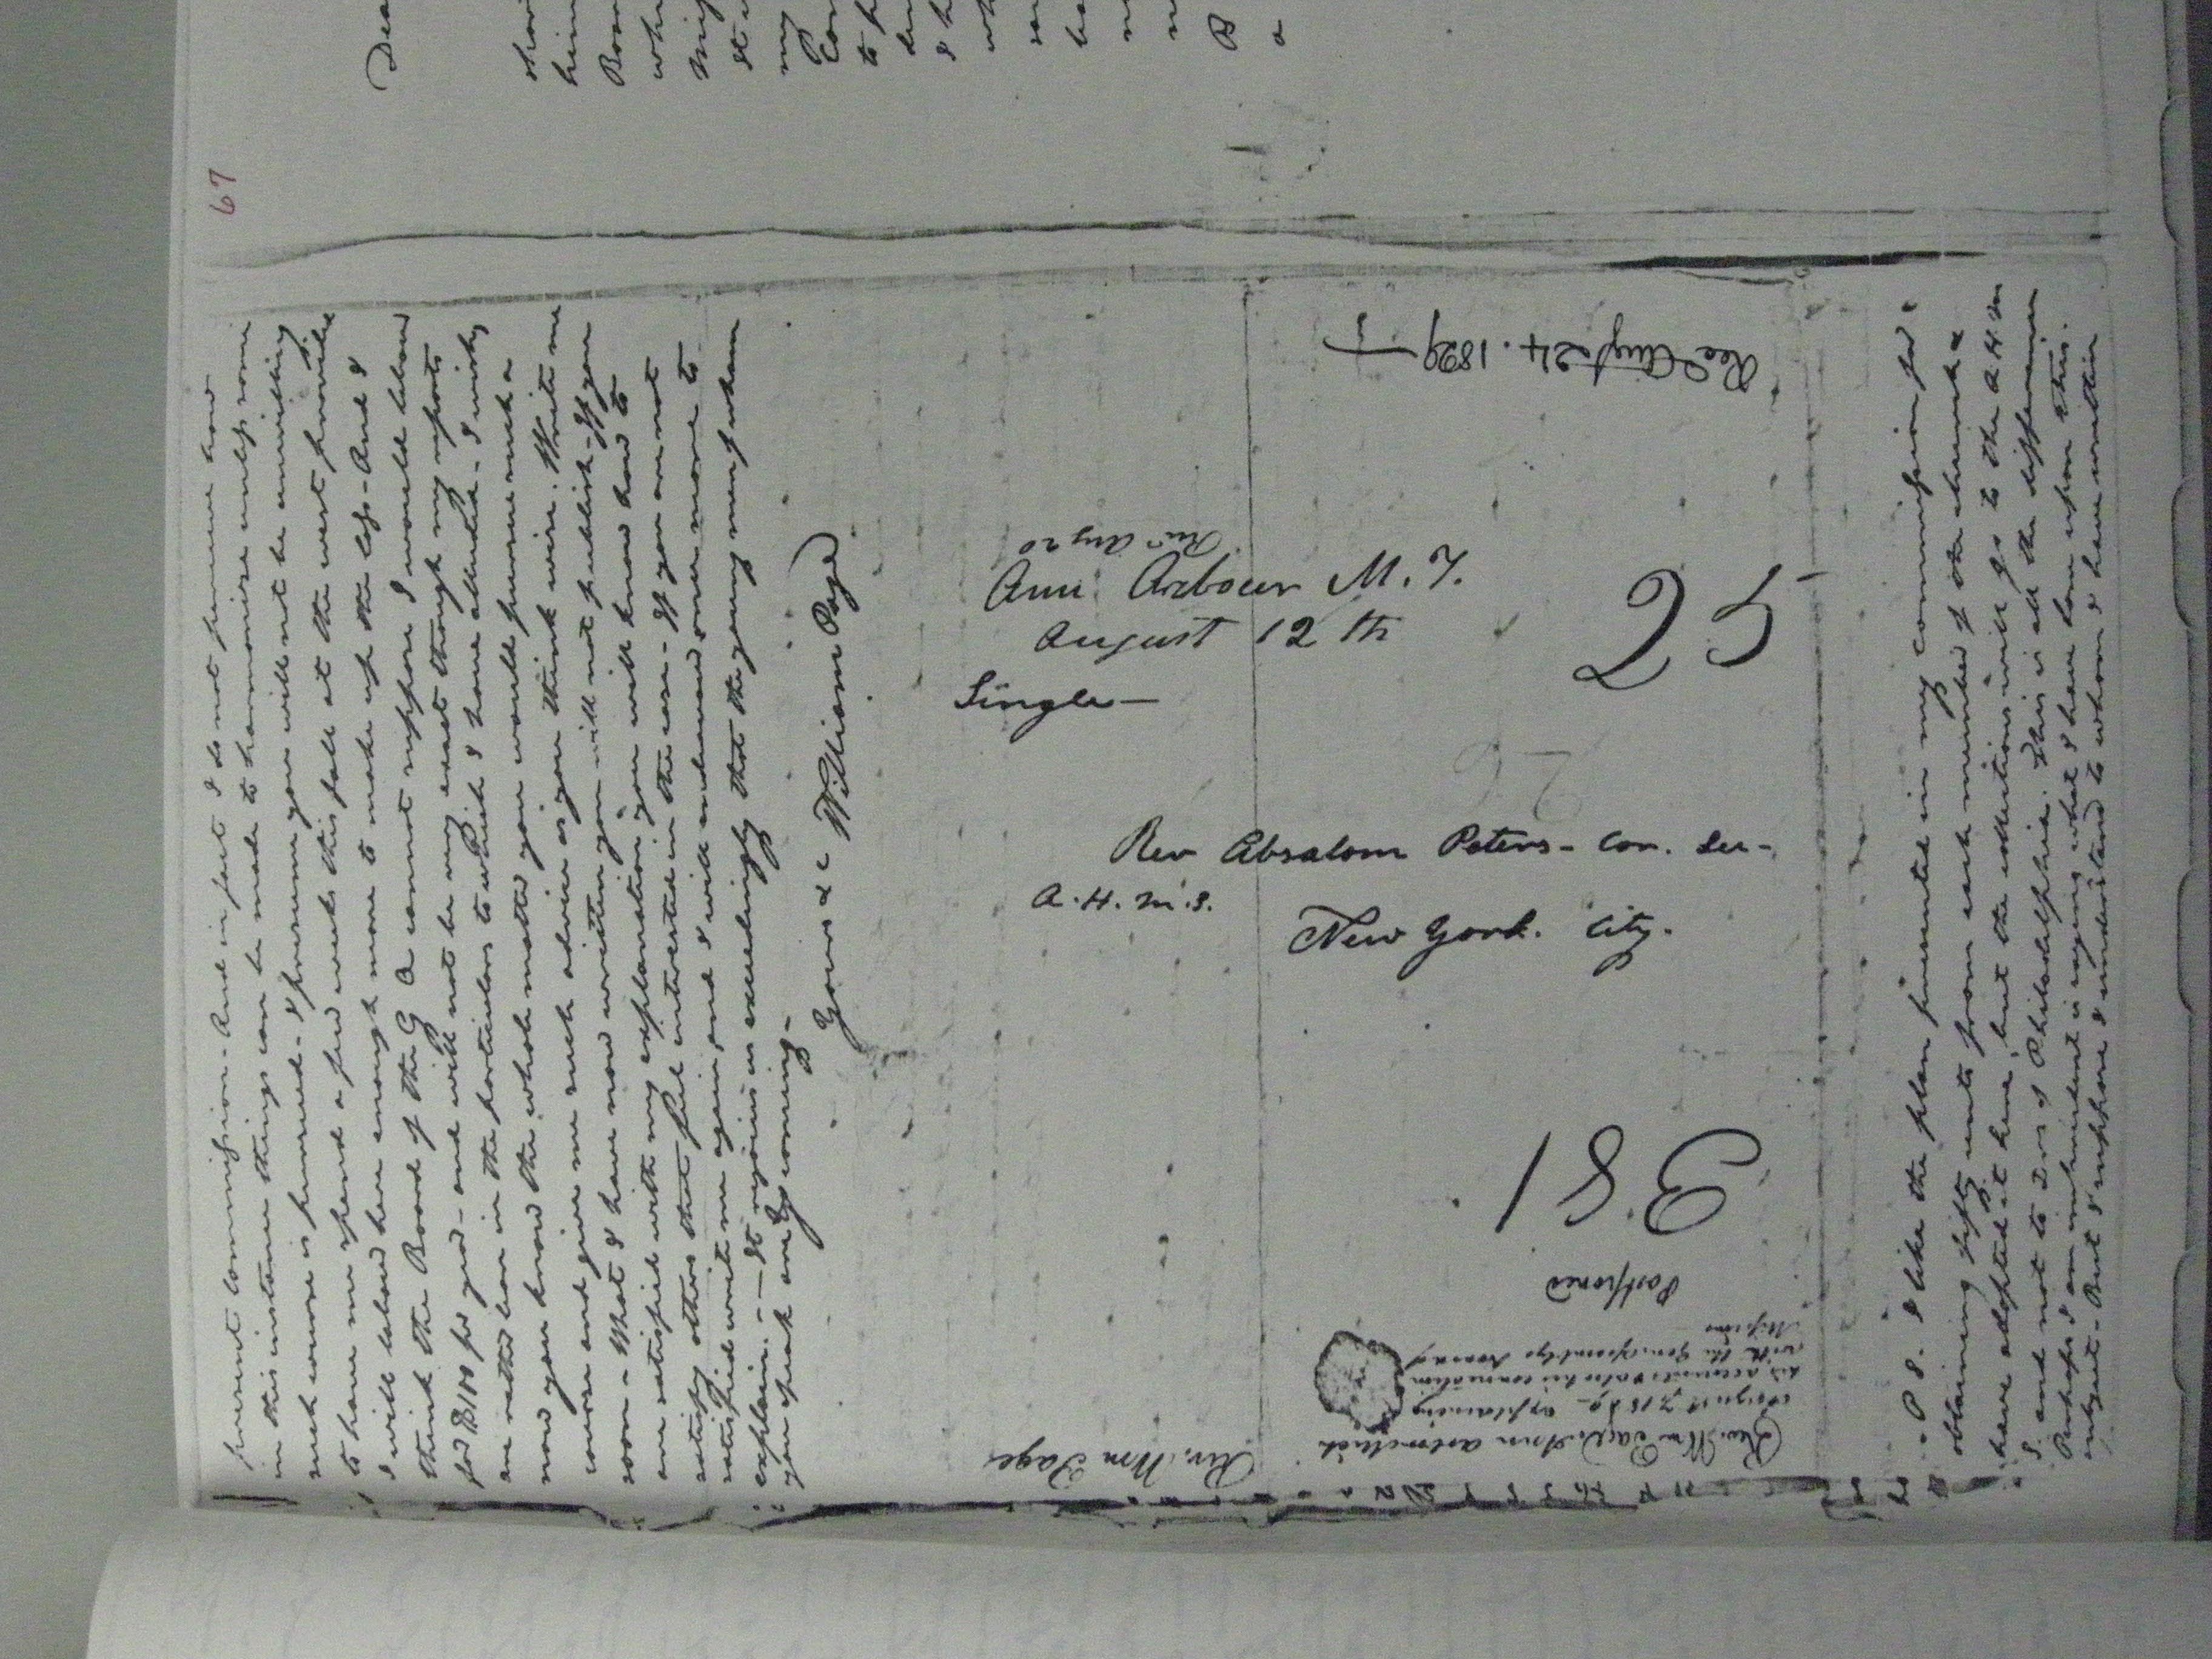 67
present commission. And in fact I do not perceive how
in this instance things can be made to harmonise unless some
such course is pursued. I presume you will not be unwilling
to have me spend a few weeks this fall at the west provided
I will labour here enough more to make up the loss - And I
think the Board of the G A cannot suppose I would labour
for $100 pr year - and will not be very exact though my reports
are rather lean in the particulars to which I have alluded - I wish
now you know the whole matter you would pursue such a
course and give me such advice as you think wise. Write me
soon - What I have now written you will not publish - If you
are satisfied with my explanation you will know how to
satisfy others that feel interested in the case - If you are not
satisfied write me again and I will endeavour once more to
explain. - - It rejoices us exceedingly that the young men of whom
you speak are coming -
Yours &c William Page
Rec Aug 20
Ann Arbour M. T.
August 12 th
Single -
25
26
Rev Absalom Peters - Cor. Sec -
A. H. M. S.
New York. City.
Recd Aug 24. 1829
381
Postponed
Rev. Wm Page
Rev. Wm Page. Ann Arbor Mich
August 7 1829 - explaining
his accounts & also his connection
with the Gen. Assemblys board of
Missions
P S. I like the plan presented in my commission for
obtaining fifty cents from each member of the church &
have adopted it here, but the collections will go to the A H M
S. and not to Drs of Philadelphia. This is all the difference
Perhaps I am imprudent in saying what I have done upon this
subject - But I suppose I understand to whom I have written